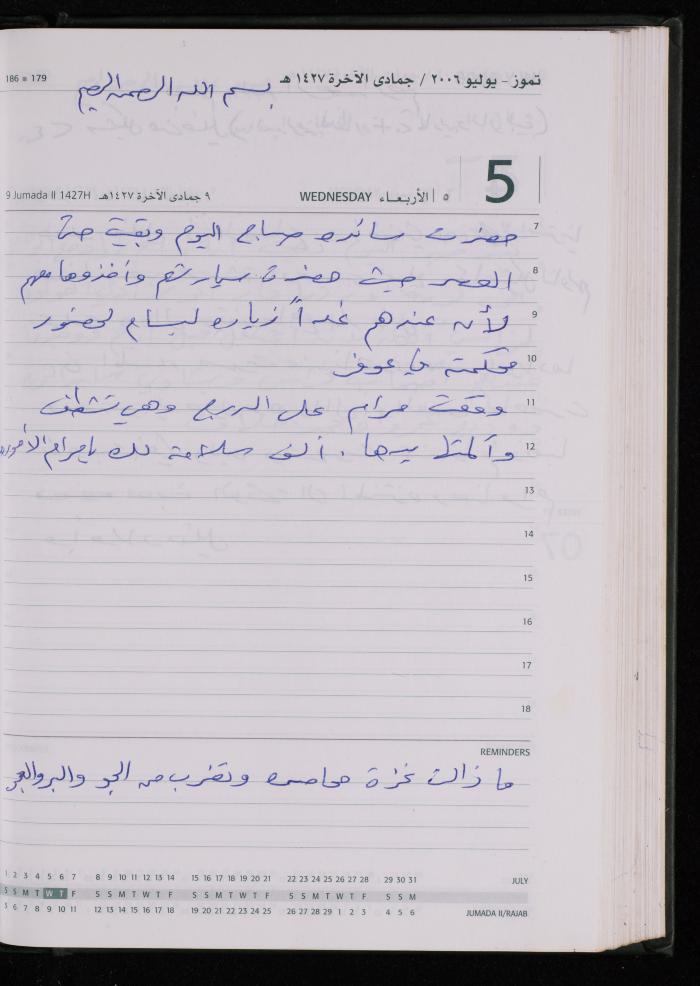 186 ■ 179
تموز - يوليو ٢٠٠٦ / جمادى الآخرة ١٤٢٧ هـ
بسم الله الرحمن الرحيم
5
9 Jumada II 1427H ٩ جمادى الآخرة ١٤٢٧هـ WEDNESDAY ٥ | الأربعاء
7 حضرت سائده صباح اليوم وبقيت حتى
8 العصر حيث حضرت سيارتهم وأخذوها معهم
9 لأن عندهم غداً زياره لبسام لحضور
10 محكمته في عوفر
11 وقعت مرام على الدرج وهي تشطف
12 وآلمتها يدها . ألف سلامة لك يا مرام الأموره
13
14
15
16
17
18
REMINDERS
ما زالت غزة محاصره وتضرب من الجو والبر والبحر
1 2 3 4 5 6 7 8 9 10 11 12 13 14 15 16 17 18 19 20 21 22 23 24 25 26 27 28 29 30 31 JULY
S S M T W T F S S M T W T F S S M T W T F S S M T W T F S S M
5 6 7 8 9 10 11 12 13 14 15 16 17 18 19 20 21 22 23 24 25 26 27 28 29 1 2 3 4 5 6 JUMADA II/RAJAB